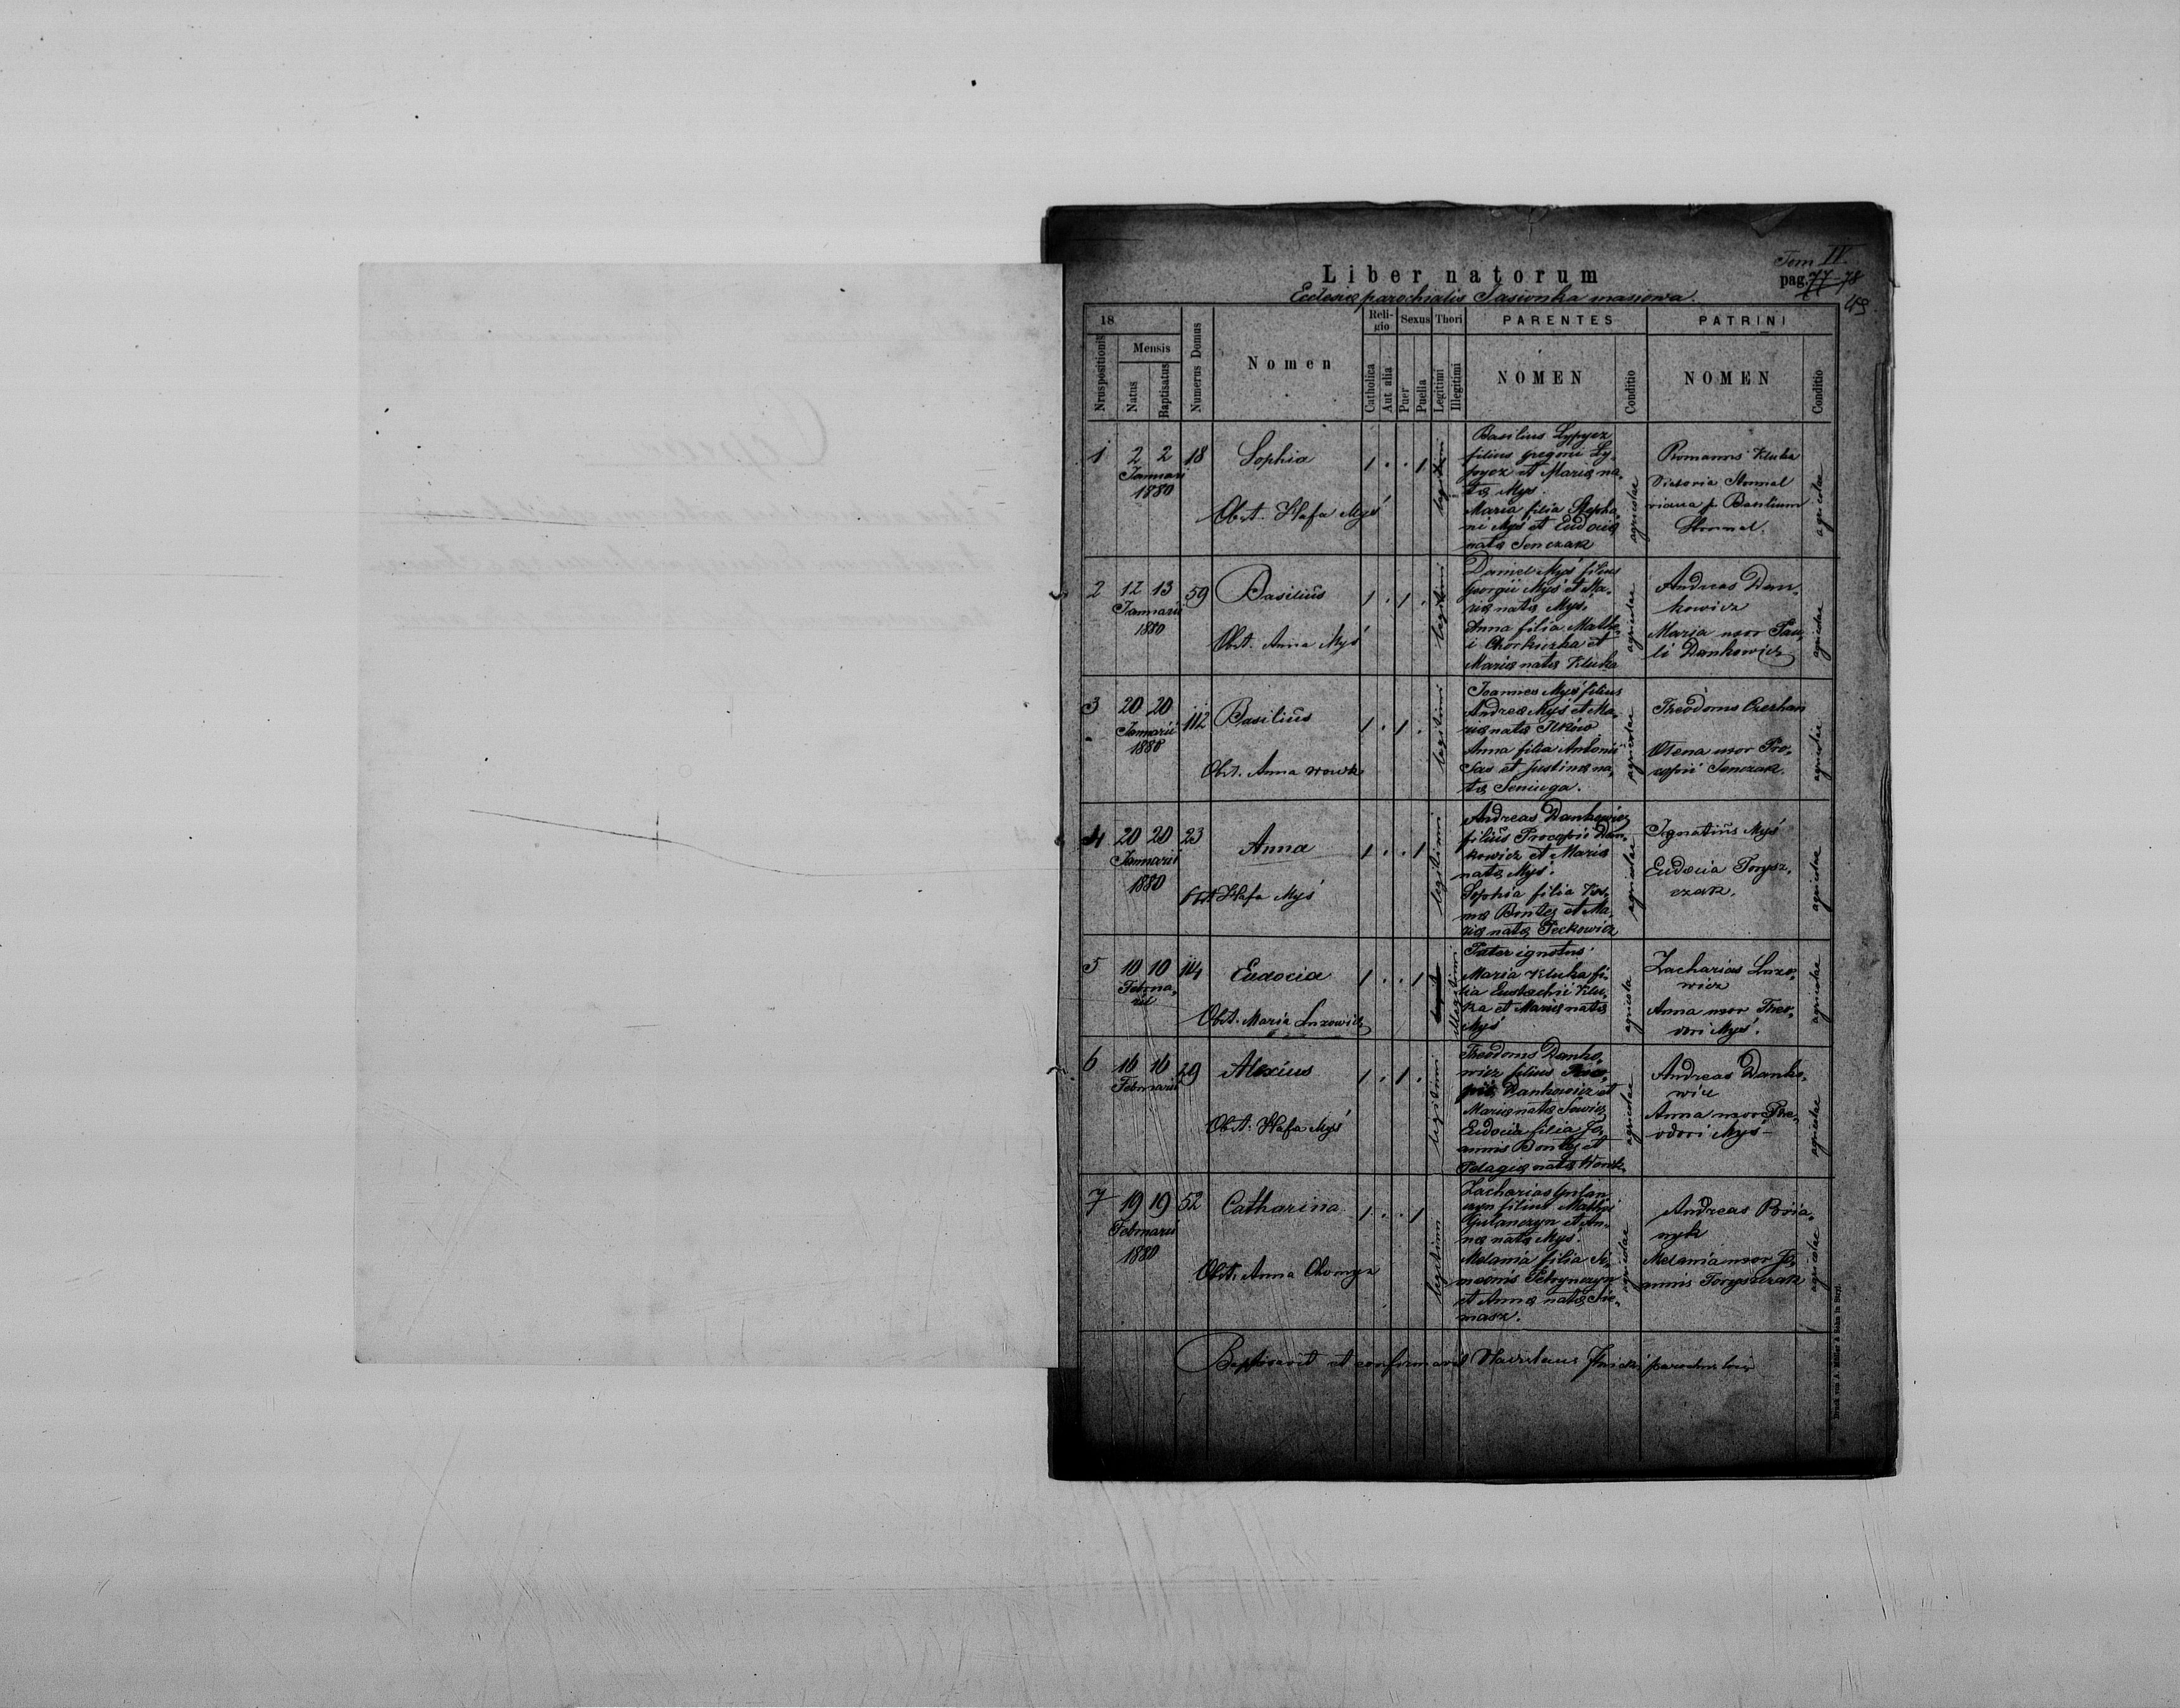 Tom IV.
Liber natorum
pag. 77-78
Ecclesiæ parochialis Jasionka masiowa.
49
18
Nrus positionis
Mensis
Natus
Baptisatus
Numerus Domus
Nomen
Religio
Catholica
Aut alia
Sexus
Puer
Puella
Thori
Legitimi
Illegitimi
PARENTES
NOMEN
Conditio
PATRINI
NOMEN
Conditio
1
2 2
Januari
1880
18
Sophia
Obst. Hafa Myś
1 . . 1
legitimi
Basilius Lypycz
filius Gregorii Ly-
pycz et Mariæ na-
tæ Myś.
Maria filia Stepha-
ni Myś et Eudociæ
natæ Senczak
agricolae
Romanus Kluka
Victoria Stormal
Basilium
Stormal.
agricolae
2
12 13
Januarii
1880
59
Basilius
Obst. Anna Myś
1 . 1 .
legitimi
Daniel Myś filius
Georgii Myś et Ma-
riæ natæ Myś.
Anna filia Mathe-
i Chorkuzka et
Mariæ natæ Kluka
agricolae
Andreas Dan-
kowicz
Maria uxor Pau-
li Dankowicz
agricolae
3
20 20
Januarii
1880
112
Basilius
Obst. Anna Wowk
1 . 1 .
legitimi
Joannes Myś filius
Andreæ Myś et Ma-
riæ natæ Ilków
Anna filia Antonii
Sas et Justinæ na-
tæ Seniuga.
agricolae
Theodorus Czerhan
Olena uxor Pro-
copii Senczak.
agricolae
4
20 20
Januarii
1880
23
Anna
Obst. Hafa Myś
1 . . 1
legitimi
Andreas Dankowicz
filius Procopii Dan-
kowicz et Mariæ
natæ Myś.
Sophia filia Kos-
mæ Bontej et Ma-
riæ natæ Peckowicz
agricolae
Ignatius Myś
Eudocia Torysz-
czak.
agricolae
5
10 10
Februa-
rii
114
Eudocia
Obst. Maria Luzowicz
1 . . 1
Illegitimi
Pater ignotus
Maria Kluka fi-
lia Eustachii Klu-
ka et Mariæ natæ
Myś
agricola
Zacharias Luzo-
wicz
Anna uxor Theo-
dori Myś.
agricolae
6
16 16
Februarii
29
Alexius
Obst. Hafa Myś
1 . 1 .
legitimi
Theodorus Danko-
wicz filius Proco-
pii Dankowicz et
Mariæ natæ Sawicz
Eudocia filia Jo-
annis Bontej et
Pelagiæ natæ Wowk
agricolae
Andreas Danko-
wicz
Anna uxor Theo-
odori Myś
agricolae
7
19 19
Februarii
1880
52
Catharina
Obst. Anna Chomyn
1 . . 1
legitimi
Zacharias Hutan-
czyn filius Mathæi
Hutanczyn et An-
næ natæ Myś.
Melania filia Si-
meonis Petrynczyn
et Annæ natæ Sie-
masz.
agricolae
Andreas Boia-
nyk
Melania uxor Jo-
annis Toryszczak
agricolae
Baptisavit et confirmavit Wladislaus parochus loci
Druck von A. Müller & Sohn in Stryj.